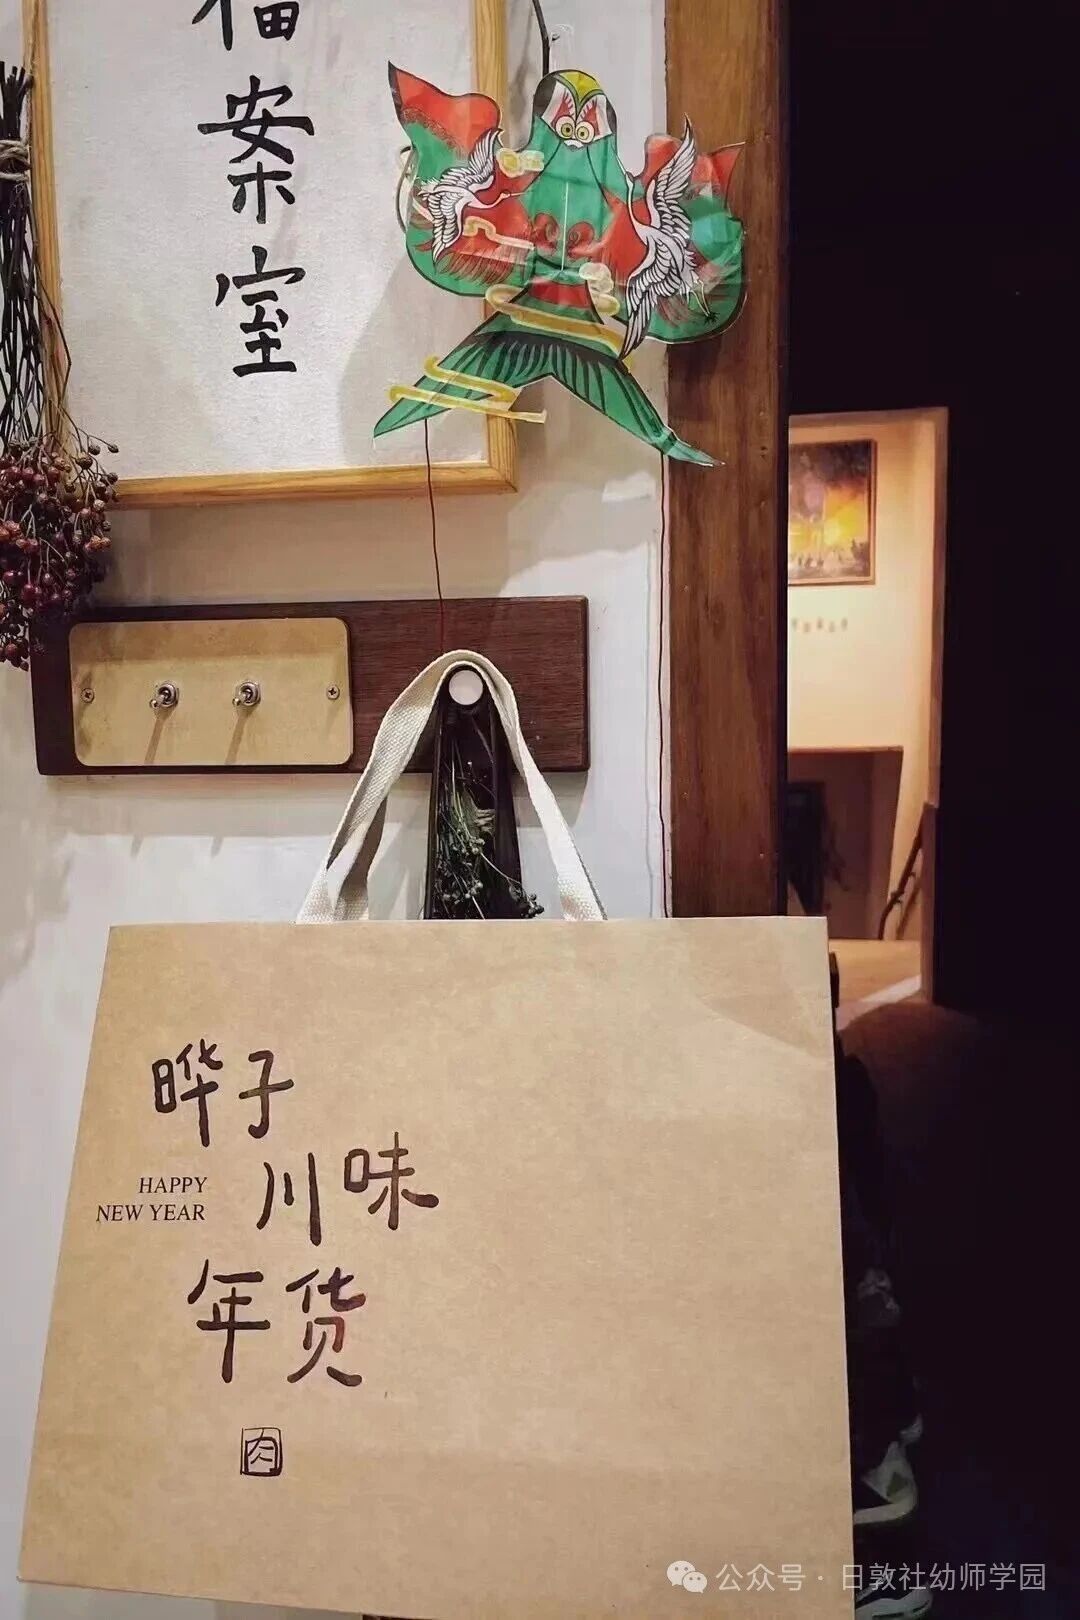 福案室
晔子
川味
HAPPY
NEW YEAR
年货
肉
公众号 · 日敦社幼师学园